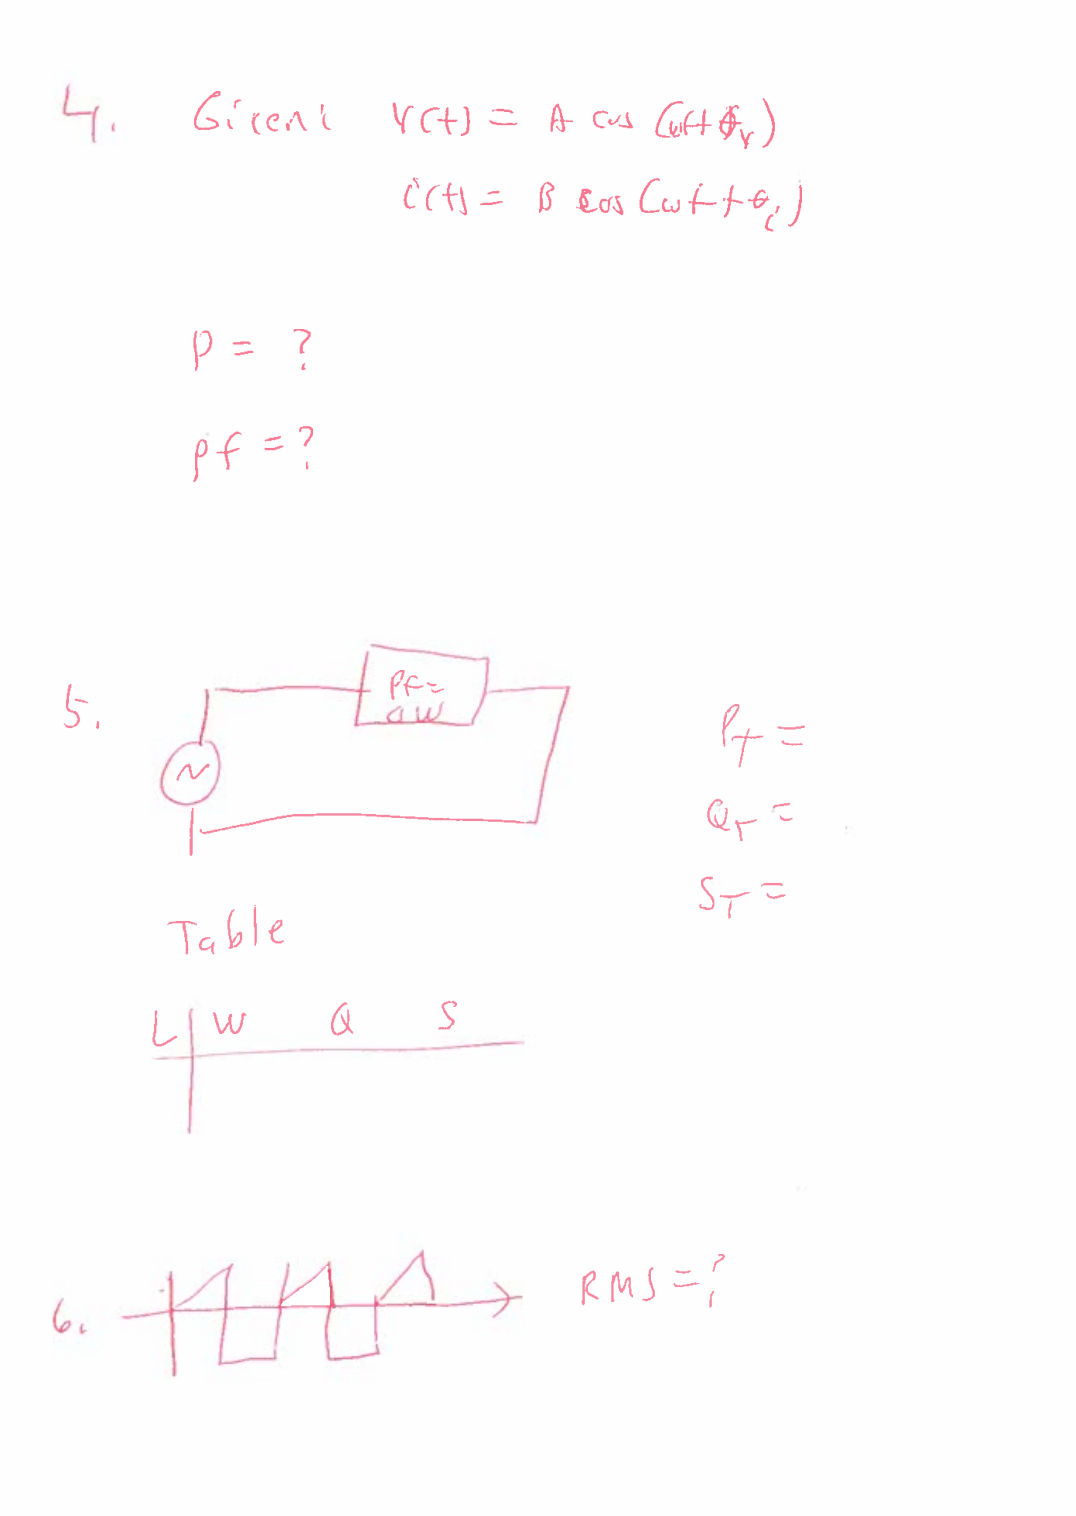 4. Given: v(t) = A cos (ωt + θv)
i(t) = B cos (ωt + θi)
P = ?
pf = ?
5.
Pf =
a W
PT =
QT =
ST =
Table
L W Q S
6. RMS = ?